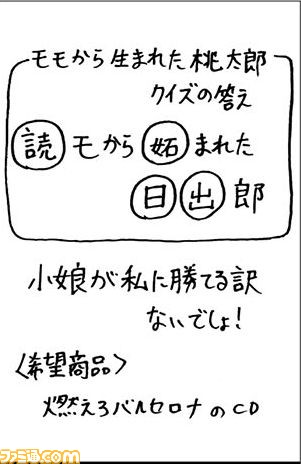 モモから生まれた桃太郎
クイズの答え
読モから妬まれた
日出郎
小娘が私に勝てる訳
ないでしょ!
〈希望商品〉
燃えろバルセロナのCD
ファミ通.com